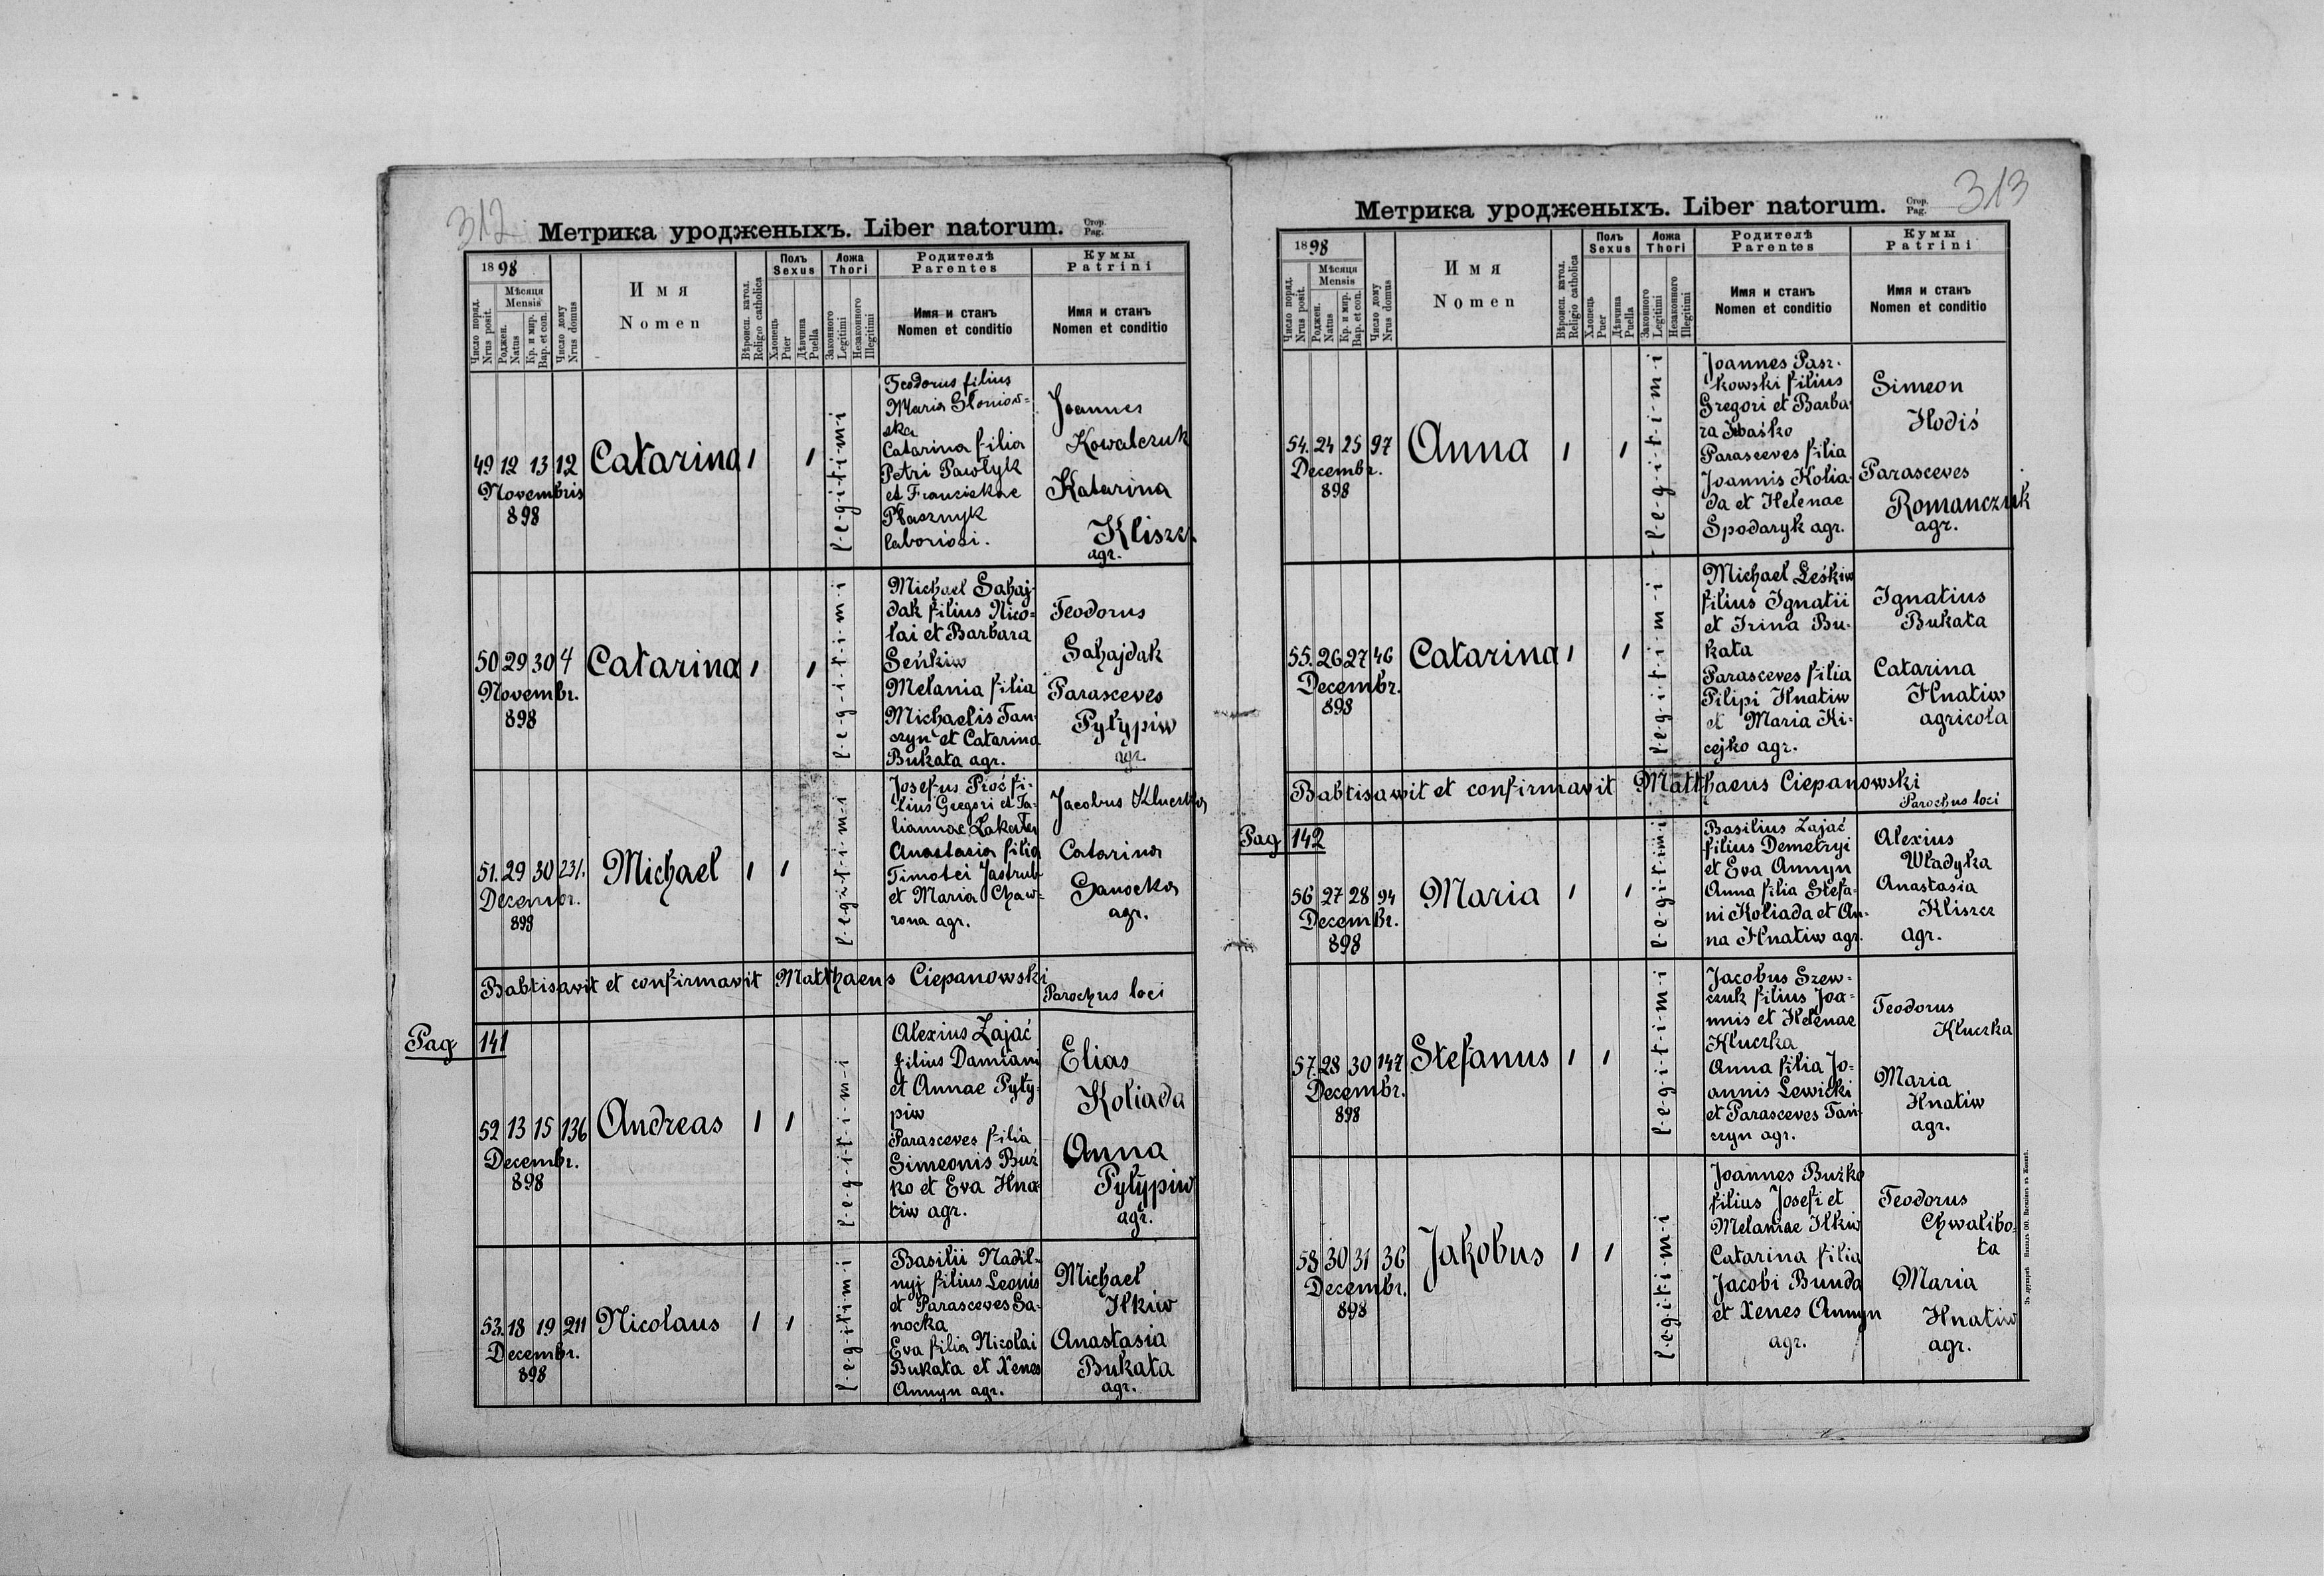 312
Метрика уродженыхъ. Liber natorum. Стор. Pag.
1898
Число поряд. Nrus posit.
Мѣсяця Mensis
Роджен. Natus
Кр. и мир. Bap. et con.
Число дому Nrus domus
Имя
Nomen
Вѣроисп. катол. Religio catholica
Полъ Sexus
Хлопець Puer
Дѣвчина Puella
Ложа Thori
Законного Legitimi
Незаконного Illegitimi
Родителѣ Parentes
Имя и станъ
Nomen et conditio
Кумы Patrini
Имя и станъ
Nomen et conditio
49 12 13 12 Catarina 1 1 l-e-g-i-t-i-m-i
Novembris
898
Teodorus filius
Maria Sloniow=
ska
Catarina filia
Petri Pawłyk
et Franciskae
Płasznyk
laboriosi.
Joannes
Kowalczuk
Katarina
Kliszcz
agr.
50 29 30 4 Catarina 1 1 l-e-g-i-t-i-m-i
Novembr.
898
Michael Sahaj-
dak filius Nico=
lai et Barbara
Seńkiw
Melania filia
Michaelis Tan-
czyn et Catarina
Bukata agr.
Teodorus
Sahajdak
Parasceves
Pyłypiw
agr.
51. 29 30 231. Michael 1 1 l-e-g-i-t-i-m-i
Decembr.
898
Josefus Proć fi-
lius Gregori et Ta-
tiannae
Anastasia filia
Timotei Jastrub
et Maria Chaw=
rona agr.
Jacobus Kluczka
Catarina
Sanocka
agr.
Babtisavit et confirmavit Matthaeus Ciepanowski
Parochus loci
Pag 141
52 13 15 136 Andreas 1 1 l-e-g-i-t-i-m-i
Decembr.
898
Alexius Zając
filius Damiani
et Annae Pyły-
piw
Parasceves filia
Simeonis Buż
ko et Eva Hna-
tiw agr.
Elias
Koliada
Anna
Pyłypiw
agr.
53. 18 19 211 Nicolaus 1 1 l-e-g-i-t-i-m-i
Decembr.
898
Basilii Nadil-
nyj filius Leonis
et Parasceves Sa-
nocka
Eva filia Nicolai
Bukata et Xenes
Annyn agr.
Michael
Ilkiw
Anastasia
Bukata
agr.
313
Метрика уродженыхъ. Liber natorum. Стор. Pag.
1898
Число поряд. Nrus posit.
Мѣсяця Mensis
Роджен. Natus
Кр. и мир. Bap. et con.
Число дому Nrus domus
Имя
Nomen
Вѣроисп. катол. Religio catholica
Полъ Sexus
Хлопець Puer
Дѣвчина Puella
Ложа Thori
Законного Legitimi
Незаконного Illegitimi
Родителѣ Parentes
Имя и станъ
Nomen et conditio
Кумы Patrini
Имя и станъ
Nomen et conditio
54. 24 25 97 Anna 1 1 l-e-g-i-t-i-m-i
Decembr.
898
Joannes Pasz-
kowski filius
Gregori et Barba-
ra
Parasceves filia
Joannis Kolia-
da et Helenae
Spodaryk agr.
Simeon
Hodiś
Parasceves
Romanczuk
agr.
55. 26 27 46 Catarina 1 1 l-e-g-i-t-i-m-i
Decembr.
898
Michael Leśkiw
filius Ignatii
et Irina Bu-
kata
Parasceves filia
Pilipi Hnatiw
et Maria Ki-
cejko agr.
Ignatius
Bukata
Catarina
Hnatiw
agricola
Babtisawit et confirmavit Matthaeus Ciepanowski
Parochus loci
Pag 142
56 27 28 94 Maria 1 1 l-e-g-i-t-i-m-i
Decembr.
898
Basilius Zając
filius Demetryi
et Eva Annyn
Anna filia Stefa-
ni Koliada et An-
na Hnatiw agr.
Alexius
Wladyka
Anastasia
Kliszcz
agr.
57. 28 30 147 Stefanus 1 1 l-e-g-i-t-i-m-i
Decembr.
898
Jacobus Szew-
czuk filius Joa-
nnis et Helenae
Kluczka
Anna filia Jo-
annis Lewicki
et Parasceves Tań-
czyn agr.
Teodorus
Kluczka
Maria
Hnatiw
agr.
58 30 31 36 Jakobus 1 1 l-e-g-i-t-i-m-i
Decembr.
898
Joannes Bużko
filius Josefi et
Melaniae Ilkiw
Catarina filia
Jacobi Bunda
et Xenes Annyn
agr.
Teodorus
Chwalibo-
ta
Maria
Hnatiw
agr.